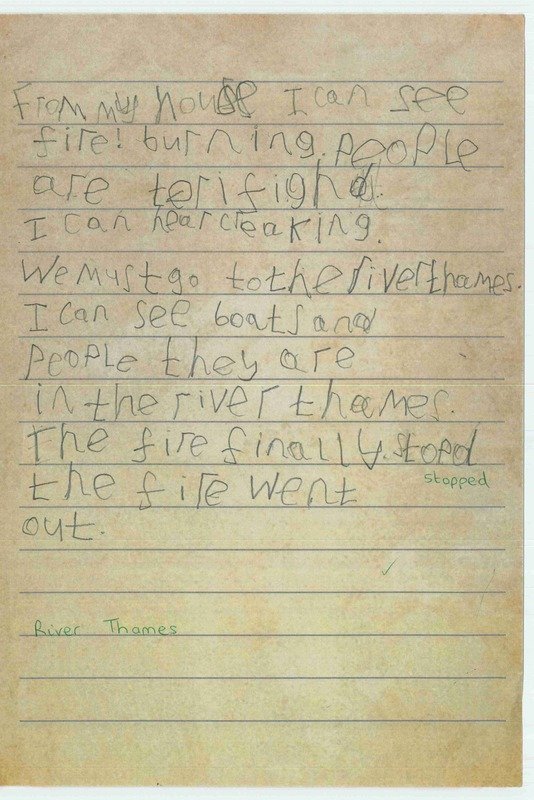 From my house I can see
fire! burning. People
are terifighd.
I can hear creaking.
We must go to the river thames.
I can see boats and
people they are
in the river thames.
The fire finally. stopd
stopped
the fire went
out.
✓
River Thames